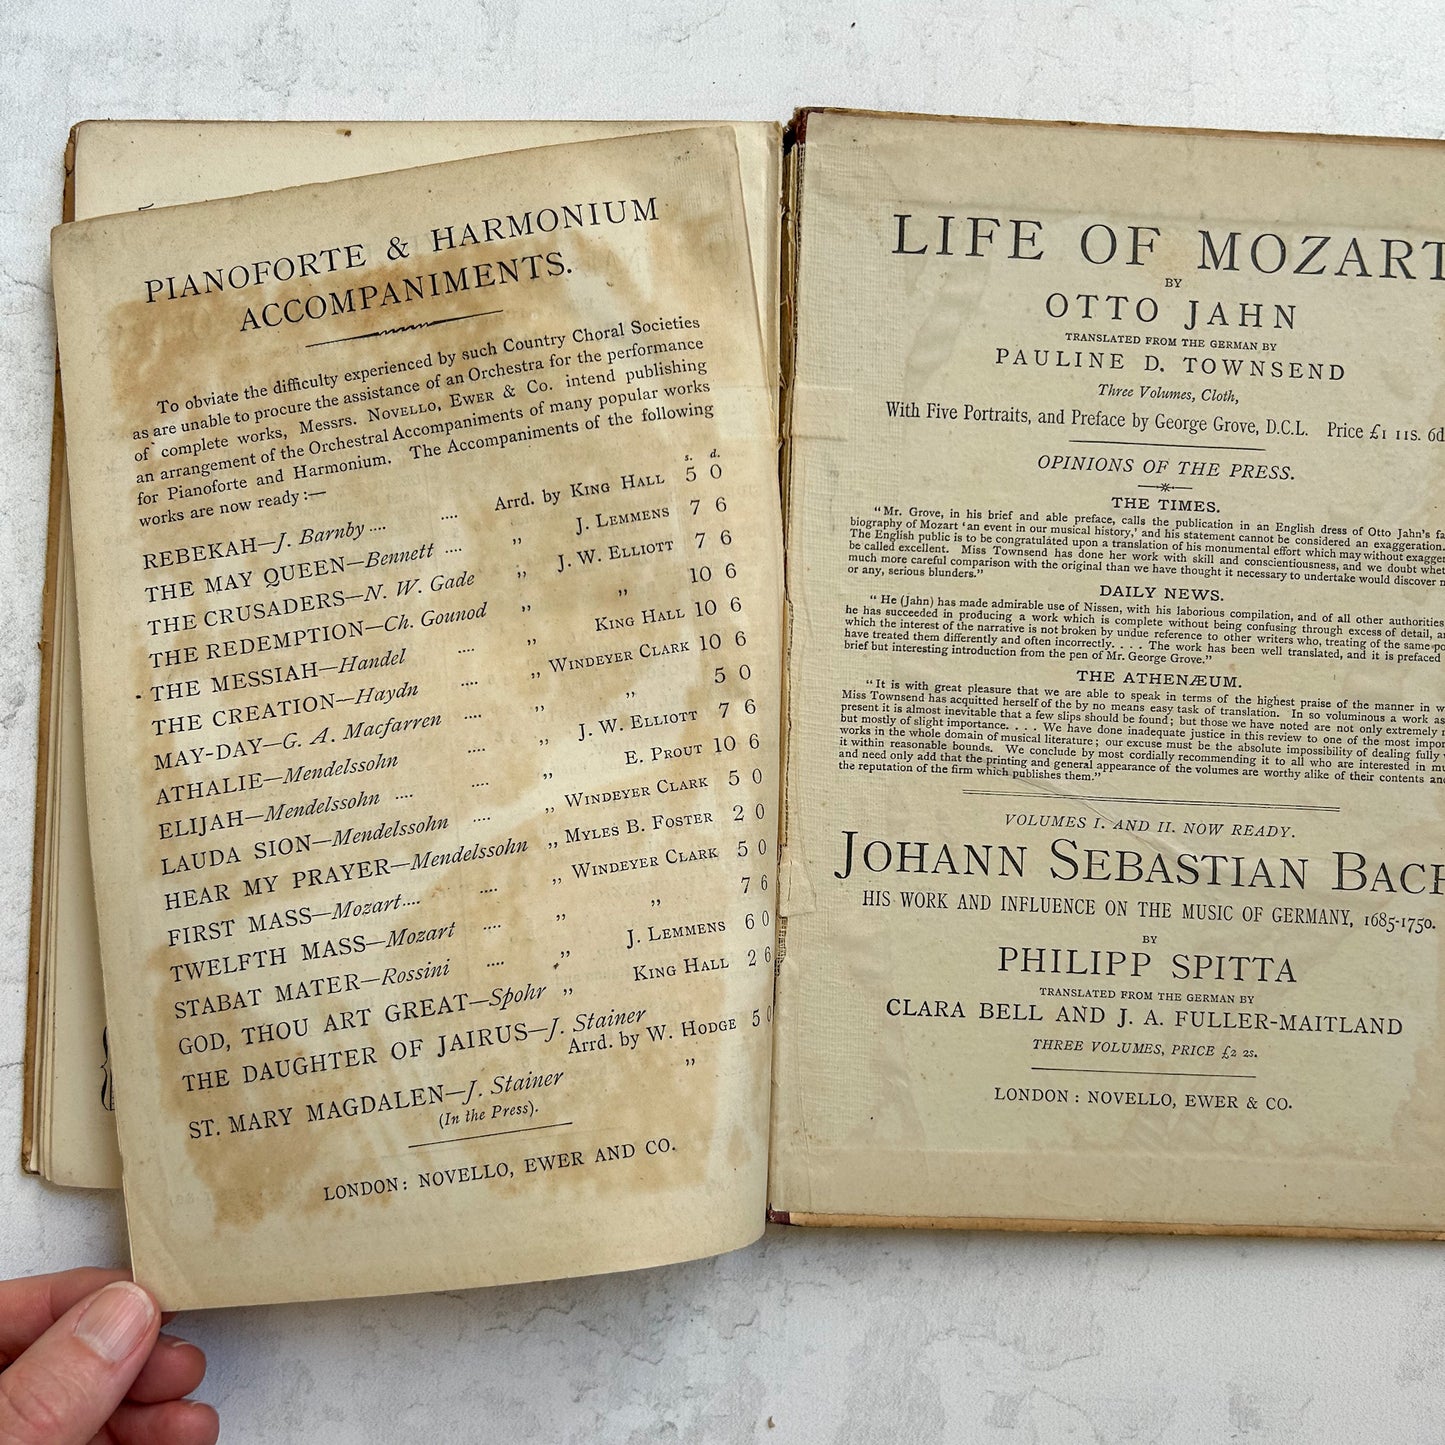 PIANOFORTE & HARMONIUM
ACCOMPANIMENTS.
To obviate the difficulty experienced by such Country Choral Societies
as are unable to procure the assistance of an Orchestra for the performance
of complete works, Messrs. NOVELLO, EWER & CO. intend publishing
an arrangement of the Orchestral Accompaniments of many popular works
for Pianoforte and Harmonium. The Accompaniments of the following
works are now ready:—
s. d.
REBEKAH—J. Barnby .... .... Arrd. by KING HALL 5 0
THE MAY QUEEN—Bennett .... „ J. LEMMENS 7 6
THE CRUSADERS—N. W. Gade „ J. W. ELLIOTT 7 6
THE REDEMPTION—Ch. Gounod „ „ 10 6
THE MESSIAH—Handel .... „ KING HALL 10 6
THE CREATION—Haydn .... „ WINDEYER CLARK 10 6
MAY-DAY—G. A. Macfarren .... „ „ 5 0
ATHALIE—Mendelssohn .... „ J. W. ELLIOTT 7 6
ELIJAH—Mendelssohn .... .... „ E. PROUT 10 6
LAUDA SION—Mendelssohn .... „ WINDEYER CLARK 5 0
HEAR MY PRAYER—Mendelssohn „ MYLES B. FOSTER 2 0
FIRST MASS—Mozart.... .... „ WINDEYER CLARK 5 0
TWELFTH MASS—Mozart .... „ „ 7 6
STABAT MATER—Rossini .... „ J. LEMMENS 6 0
GOD, THOU ART GREAT—Spohr „ KING HALL 2 6
THE DAUGHTER OF JAIRUS—J. Stainer
Arrd. by W. HODGE 5 0
ST. MARY MAGDALEN—J. Stainer „
(In the Press).
LONDON: NOVELLO, EWER AND CO.
LIFE OF MOZART
BY
OTTO JAHN
TRANSLATED FROM THE GERMAN BY
PAULINE D. TOWNSEND
Three Volumes, Cloth,
With Five Portraits, and Preface by George Grove, D.C.L. Price £1 11s. 6d
OPINIONS OF THE PRESS.
THE TIMES.
"Mr. Grove, in his brief and able preface, calls the publication in an English dress of Otto Jahn's
biography of Mozart 'an event in our musical history,' and his statement cannot be considered an exaggeration.
The English public is to be congratulated upon a translation of his monumental effort which may without
be called excellent. Miss Townsend has done her work with skill and conscientiousness, and we doubt
much more careful comparison with the original than we have thought it necessary to undertake would discover
or any, serious blunders."
DAILY NEWS.
"He (Jahn) has made admirable use of Nissen, with his laborious compilation, and of all other authorities,
he has succeeded in producing a work which is complete without being confusing through excess of detail,
which the interest of the narrative is not broken by undue reference to other writers who, treating of the same
have treated them differently and often incorrectly. . . . The work has been well translated, and it is prefaced
brief but interesting introduction from the pen of Mr. George Grove."
THE ATHENÆUM.
"It is with great pleasure that we are able to speak in terms of the highest praise of the manner in
Miss Townsend has acquitted herself of the by no means easy task of translation. In so voluminous a work as
present it is almost inevitable that a few slips should be found; but those we have noted are not only extremely
but mostly of slight importance. . . . We have done inadequate justice in this review to one of the most
works in the whole domain of musical literature; our excuse must be the absolute impossibility of dealing fully
it within reasonable bounds. We conclude by most cordially recommending it to all who are interested in
and need only add that the printing and general appearance of the volumes are worthy alike of their contents
the reputation of the firm which publishes them."
VOLUMES I. AND II. NOW READY.
JOHANN SEBASTIAN BACH
HIS WORK AND INFLUENCE ON THE MUSIC OF GERMANY, 1685-1750.
BY
PHILIPP SPITTA
TRANSLATED FROM THE GERMAN BY
CLARA BELL AND J. A. FULLER-MAITLAND
THREE VOLUMES, PRICE £2 2s.
LONDON: NOVELLO, EWER & CO.